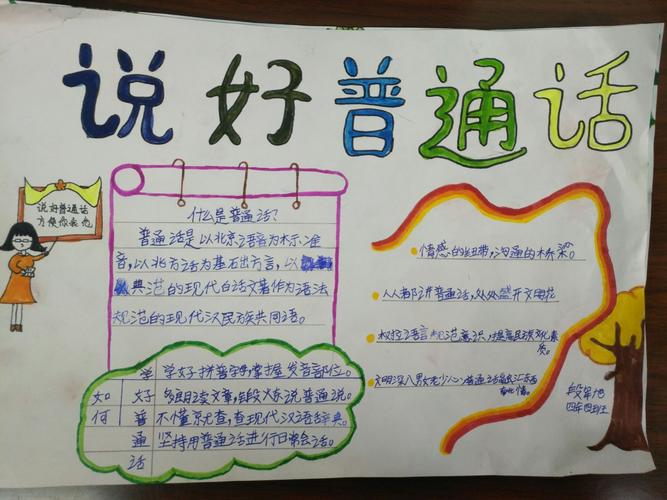 说好普通话
说好普通话
方便你我他
什么是普通话?
普通话是以北京语音为标准
音,以北方话为基石出方言,以
典范的现代白话文著作为语法
规范的现代汉民族共同语。
如何学好普通话
学好拼音字母,掌握发音部位。
多朗读文章,锻炼说普通说。
不懂就查,查现代汉语辞典。
坚持用普通话进行日常会话。
情感的纽带,沟通的桥梁。
人人都讲普通话,处处盛开文明花
树立语言规范意识,提高民族文化素
质。
文明深入男女老少心,普通话
四年四班